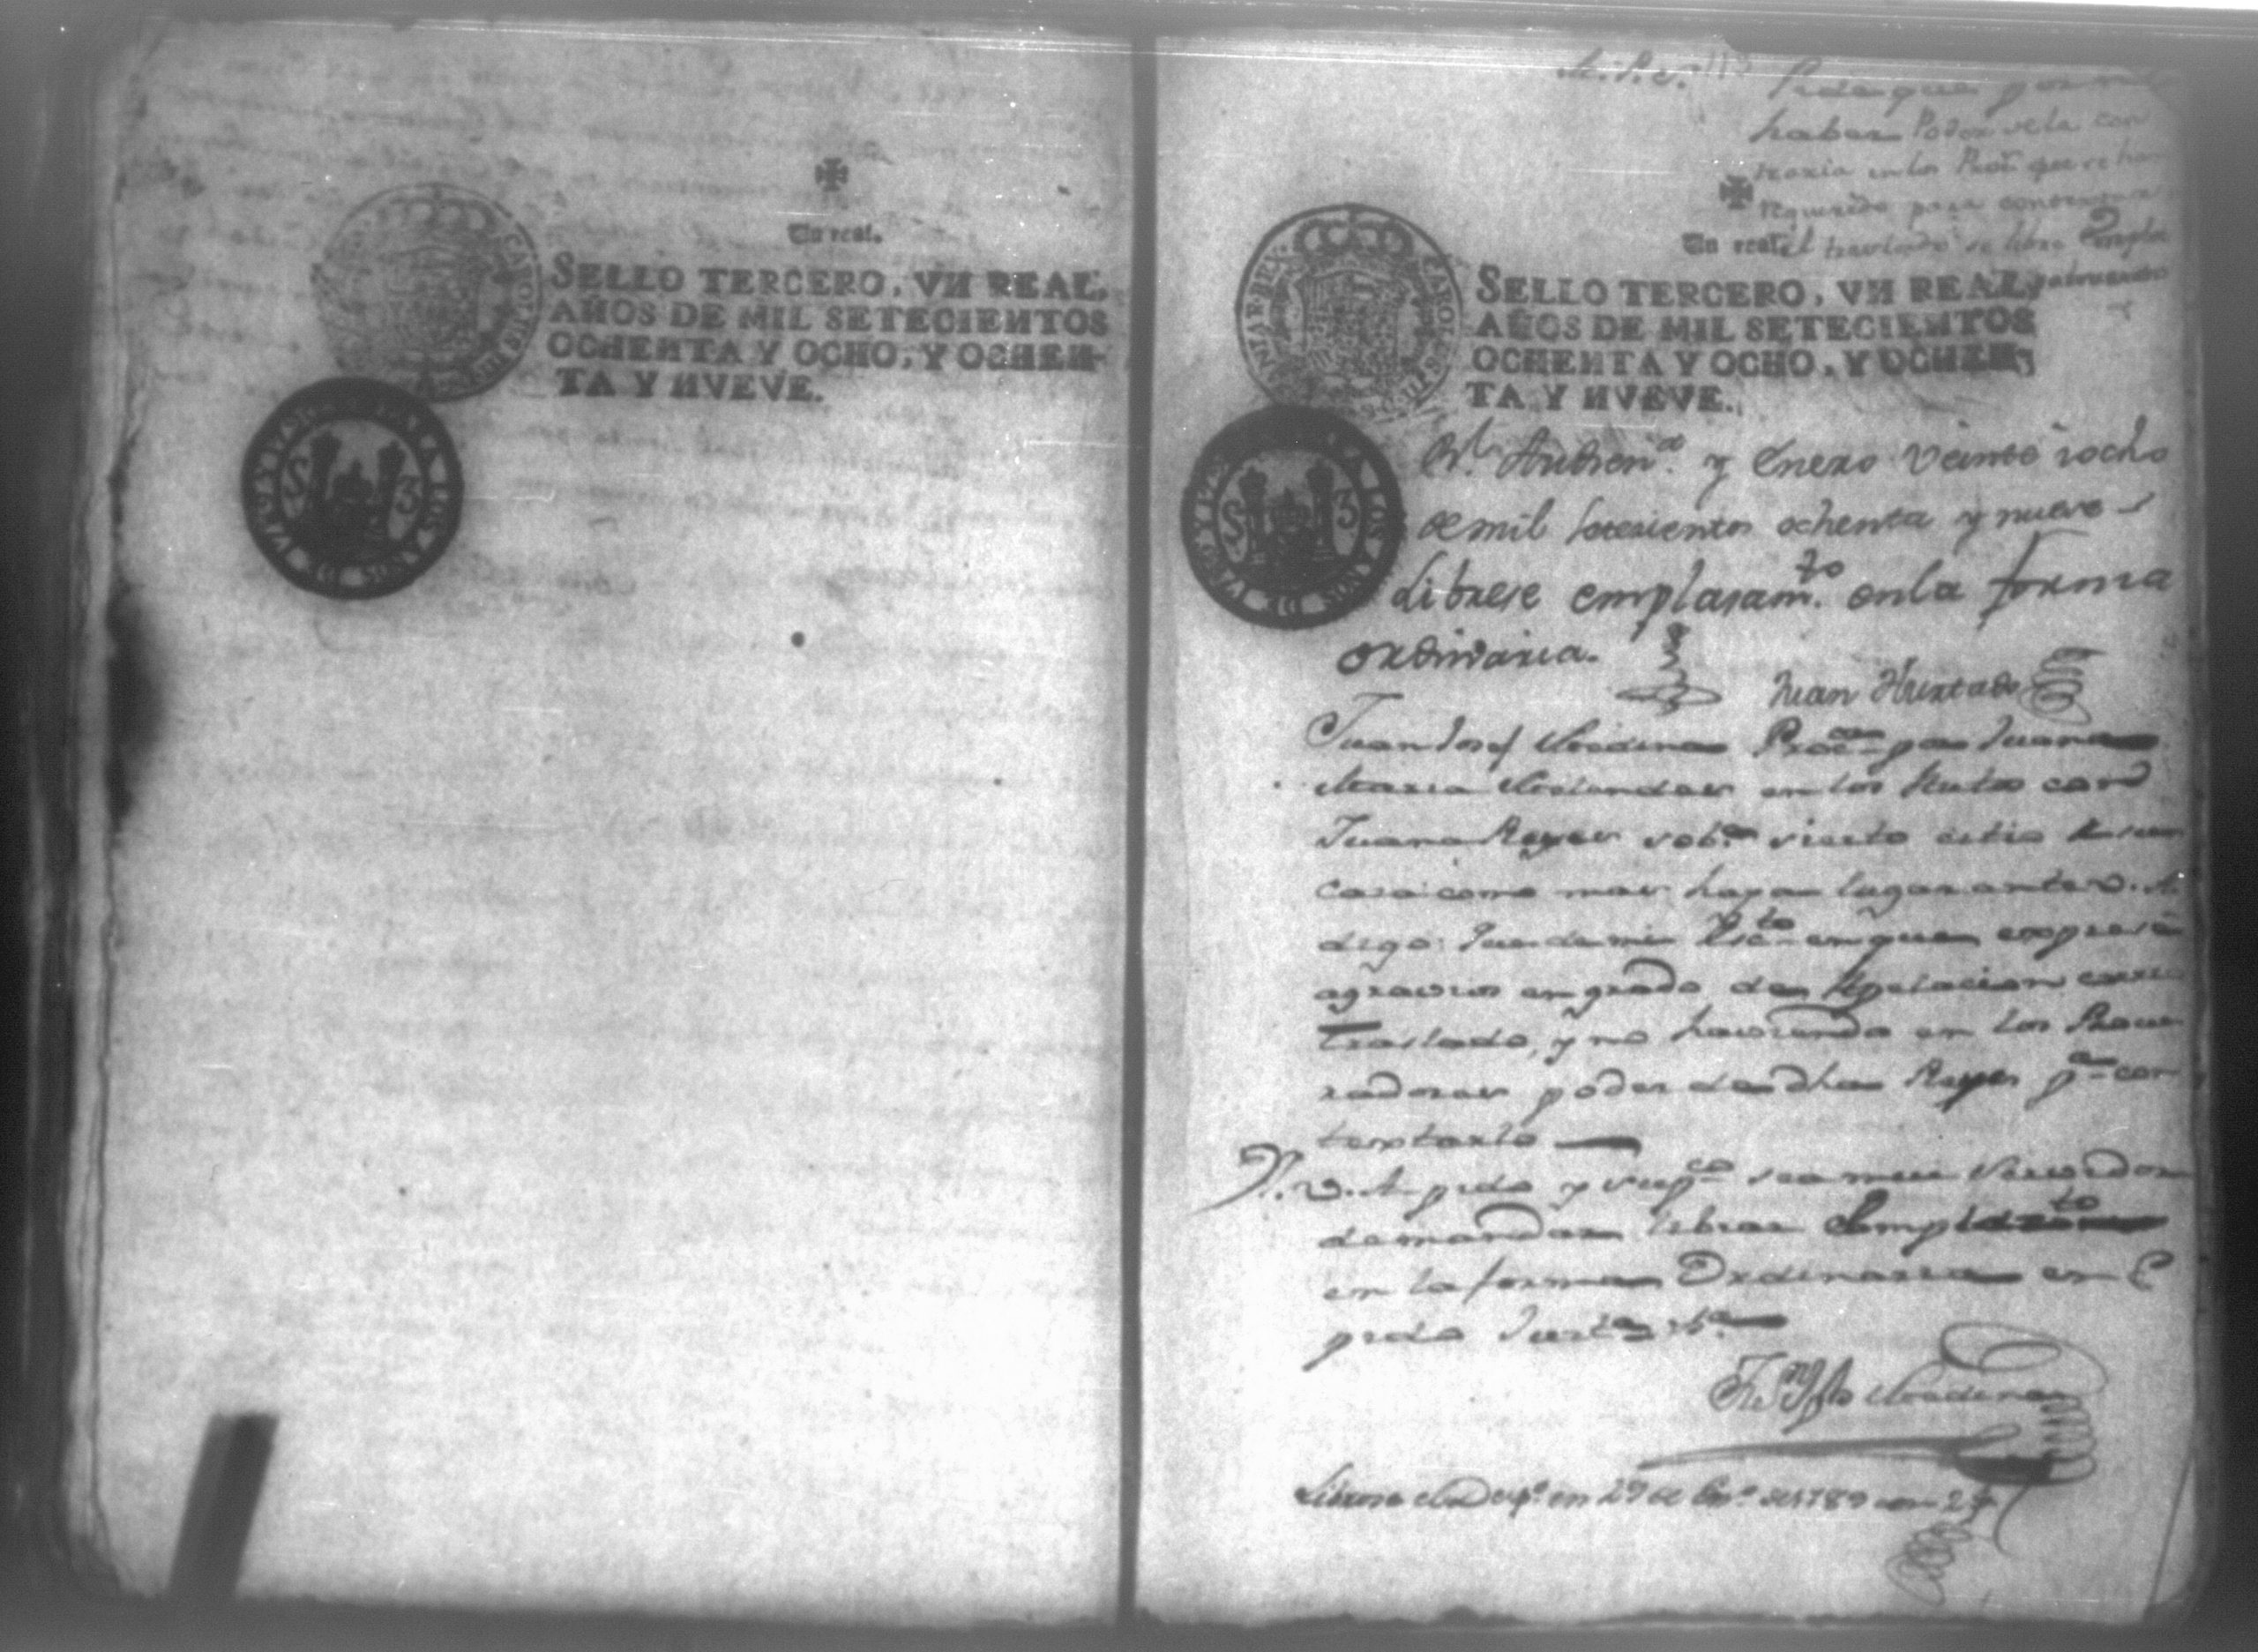 Un real.
SELLO TERCERO, VN REAL,
AÑOS DE MIL SETECIENTOS
OCHENTA Y OCHO, Y OCHEN-
TA Y NVEVE.
M.P.S. Pide que por no
haber Poder de la con
traria en los Proc.s que se han
requerido para
Un real. el traslado se libre Empla
SELLO TERCERO, VN REAL,
AÑOS DE MIL SETECIENTOS
OCHENTA Y OCHO, Y OCHEN-
TA Y NVEVE.
R.l Audien.a y Enero veinte iocho
de mil setesientos ochenta y nueve
Librese emplasam.to en la forma
ordinaria.
Juan Hurtado
Juan Josef Medina Proc.or por Juana
Maria en los Autos con
Juana Reyes sob.e sierto citio de su
casa como mas haya lugar ante V. A.
digo: Que de mi Esc.to en que expresè
agravios en grado de Apelacion corrio
Traslado, y no haviendo en los Procu
radores poder de dha Reyes p.a con
textarlo
A. V. A. pido y sup.co sea mui servido
demandar librar Emplazam.to
en la forma Ordinaria en
pido Just.a
Medina
Librose el Desp.o en 29 de En.o de 1789 con